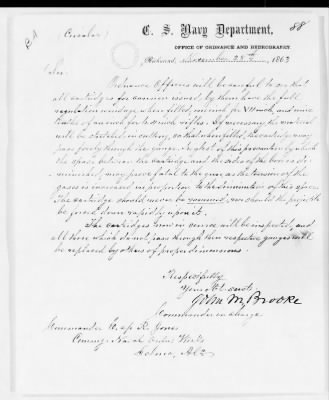 88
(Circular)
C. S. Navy Department,
OFFICE OF ORDNANCE AND HYDROGRAPHY.
Richmond, November 28th 1863
Sir,
Ordnance Officers will be careful to see that
all cartridges for cannon issued by them have the full
regulation windage when filled,
of an inch for rifles. If necessary the material
will be stretched in cutting, so that when filled, the cartridge may
pass freely through the Gauge. Neglect of this precaution by which
the space between the cartridge and the sides of the bore is di-
minished, may prove fatal to the gun, as the tension of the
gases is increased in proportion to the diminution of this space.
The cartridge should never be rammed, nor should the projectile
be forced down rapidly upon it.
The cartridges now in service will be inspected, and
all those which do not pass through their respective gauges will
be replaced by others of proper dimensions.
Respectfully
Your Obt. Servt.
John M. Brooke
Commander in charge
Commander Catesby ap R. Jones
Comdg. Naval Works
Selma, Ala